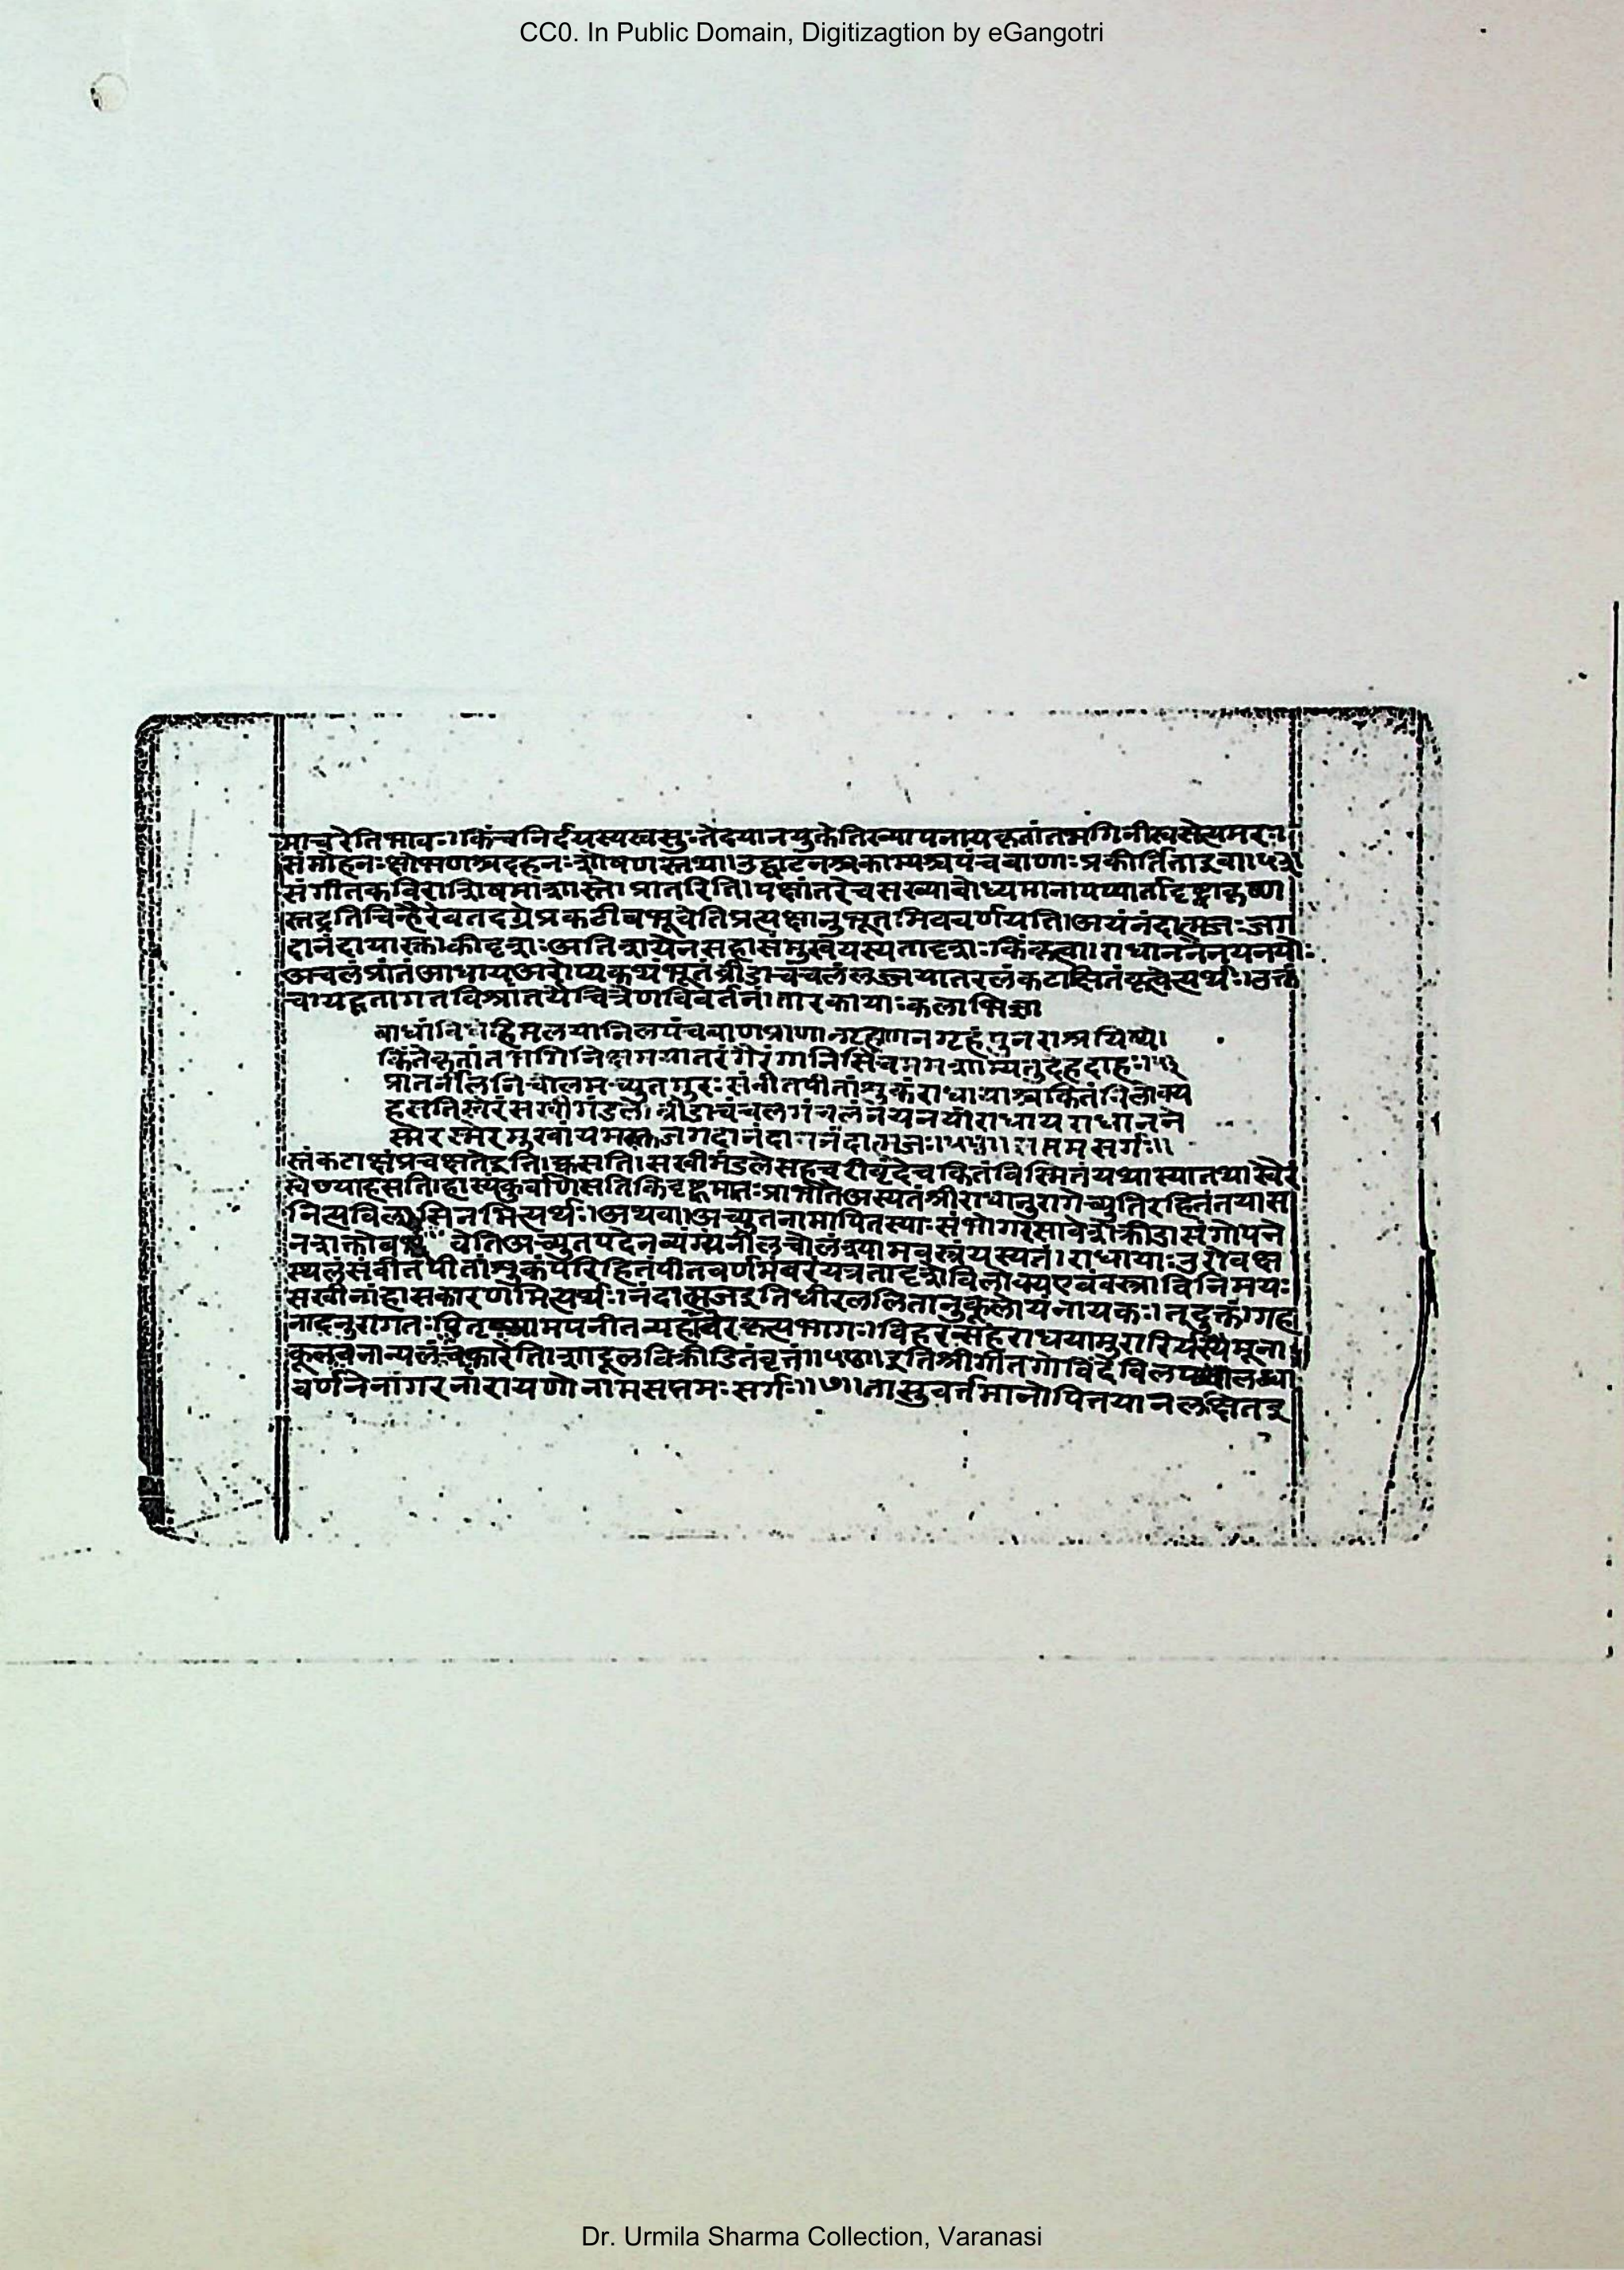 CC0. In Public Domain, Digitizagtion by eGangotri
माचरेतिभावः।किंचनिर्दयस्यखसुःतेदयानयुक्तेतिख्यापनायकृतांतभगिनीत्वसेत्यमरः।
संमोहनःक्षोभणश्चदहनःशोषणस्तथा।उच्चाटनश्चकामस्यपंचबाणाःप्रकीर्तिताइवा।५३।
संगीतकविरात्रिषमाशास्ते। प्रातरिति।पक्षांतरेचसख्याबोध्यमानाय दृष्ट्वाकृष्ण
स्तद्रतिचिन्हैरेवतदग्रेप्रकटीबभूवेतिप्रत्यक्षानुभूतमिववर्णयति।अयंनंदात्मजःजग
दानंदायास्तु।कीदृशःअतिशयेनसहासंमुखंयस्यतादृशःकिंकृत्वा।राधाननेनयनयोः
अंचलंप्रांतंआधायअरोप्यकथंभूतंव्रीडाचंचलंलज्जयातरलंकटाक्षितंकृत्वेत्यर्थः।उक्तं
चायद्गतागतविश्रांतयैचित्रेणविवर्तनं।तारकायाःकलाभिज्ञा
बाधांविधेहिमलयानिलपंचबाणप्राणानगृहाणनगृहंपुनराश्रयिष्ये।
किंतेकृतांतभगिनिक्षमयातरंगैरंगानिसिंचममशाम्यतुदेहदाहः।५३
प्रातर्नीलनिचोलमच्युतमुरःसंवीतपीतांशुकंराधायाश्चकितंविलोक्य
हसतिस्वैरंसखीमंडले।व्रीडाचंचलमंचलंनयनयोराधायराधानने
स्मेरस्मेरमुखोयमस्तुजगदानंदायनंदात्मजः।५५।।सप्तमसर्गः।।
स्तंकटाक्षंप्रचक्षतेइति।कसति।सखीमंडलेसहचरीवृंदेचकितंविस्मितंयथास्यात्तथास्वैरं
स्वेच्छयाहसति।हास्यंकुर्वाणेसतिकिंदृष्ट्वा श्रीराधानुरागेच्युतिरहितंतयास
नित्यविलासिनमित्यर्थः।अथवा।अच्युतनामापितस्याःसंभोगरसावेशेक्रीडासंगोपने
नशक्तो वेतिअच्युतपदेनव्यंग्यंनीलचोलंश्यामवस्त्रंयस्यतं।राधायाःउरोवक्ष
स्थलंसंवीतपीतांशुकंपरिहितंपीतवर्णमंबरंयत्रतादृशंविलोक्यएवंवस्त्राविनिमयः
सखीनांहासकारणमित्यर्थः।नंदात्मजइतिधीरललितानुकूलोयंनायकः।तदुक्तं।गहा
नादनुरागतः विहरन्सहराधयामुरारिर्यस्यैमूना
कूलवनान्यलंचकारेति।शार्दूलविक्रीडितंवृत्तं।।५५।।इतिश्रीगीतगोविंदेविलप लब्धा
वर्णनेनागरनारायणोनामसप्तमःसर्गः।।७।।तासुवर्तमानोपितयानलक्षितइ
Dr. Urmila Sharma Collection, Varanasi